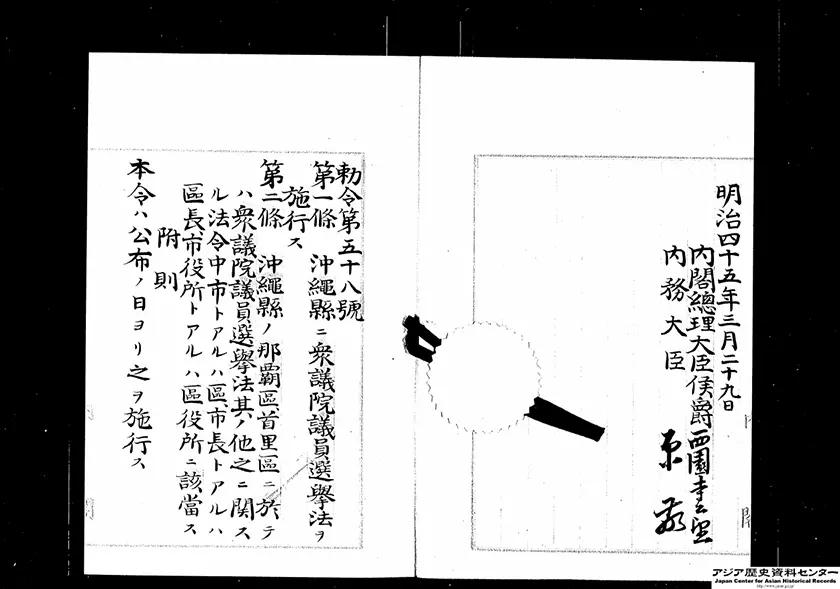 明治四十五年三月二十九日
内閣總理大臣侯爵西園寺公望
内務大臣 原敬
勅令第五十八號
第一條 沖繩縣ニ衆議院議員選擧法ヲ
施行ス
第二條 沖繩縣ノ那霸區首里區ニ於テ
ハ衆議院議員選擧法其ノ他之ニ関ス
ル法令中市トアルハ區、市長トアルハ
區長、市役所トアルハ區役所ニ該當ス
附則
本令ハ公布ノ日ヨリ之ヲ施行ス
アジア歴史資料センター
Japan Center for Asian Historical Records
http://www.jacar.go.jp/